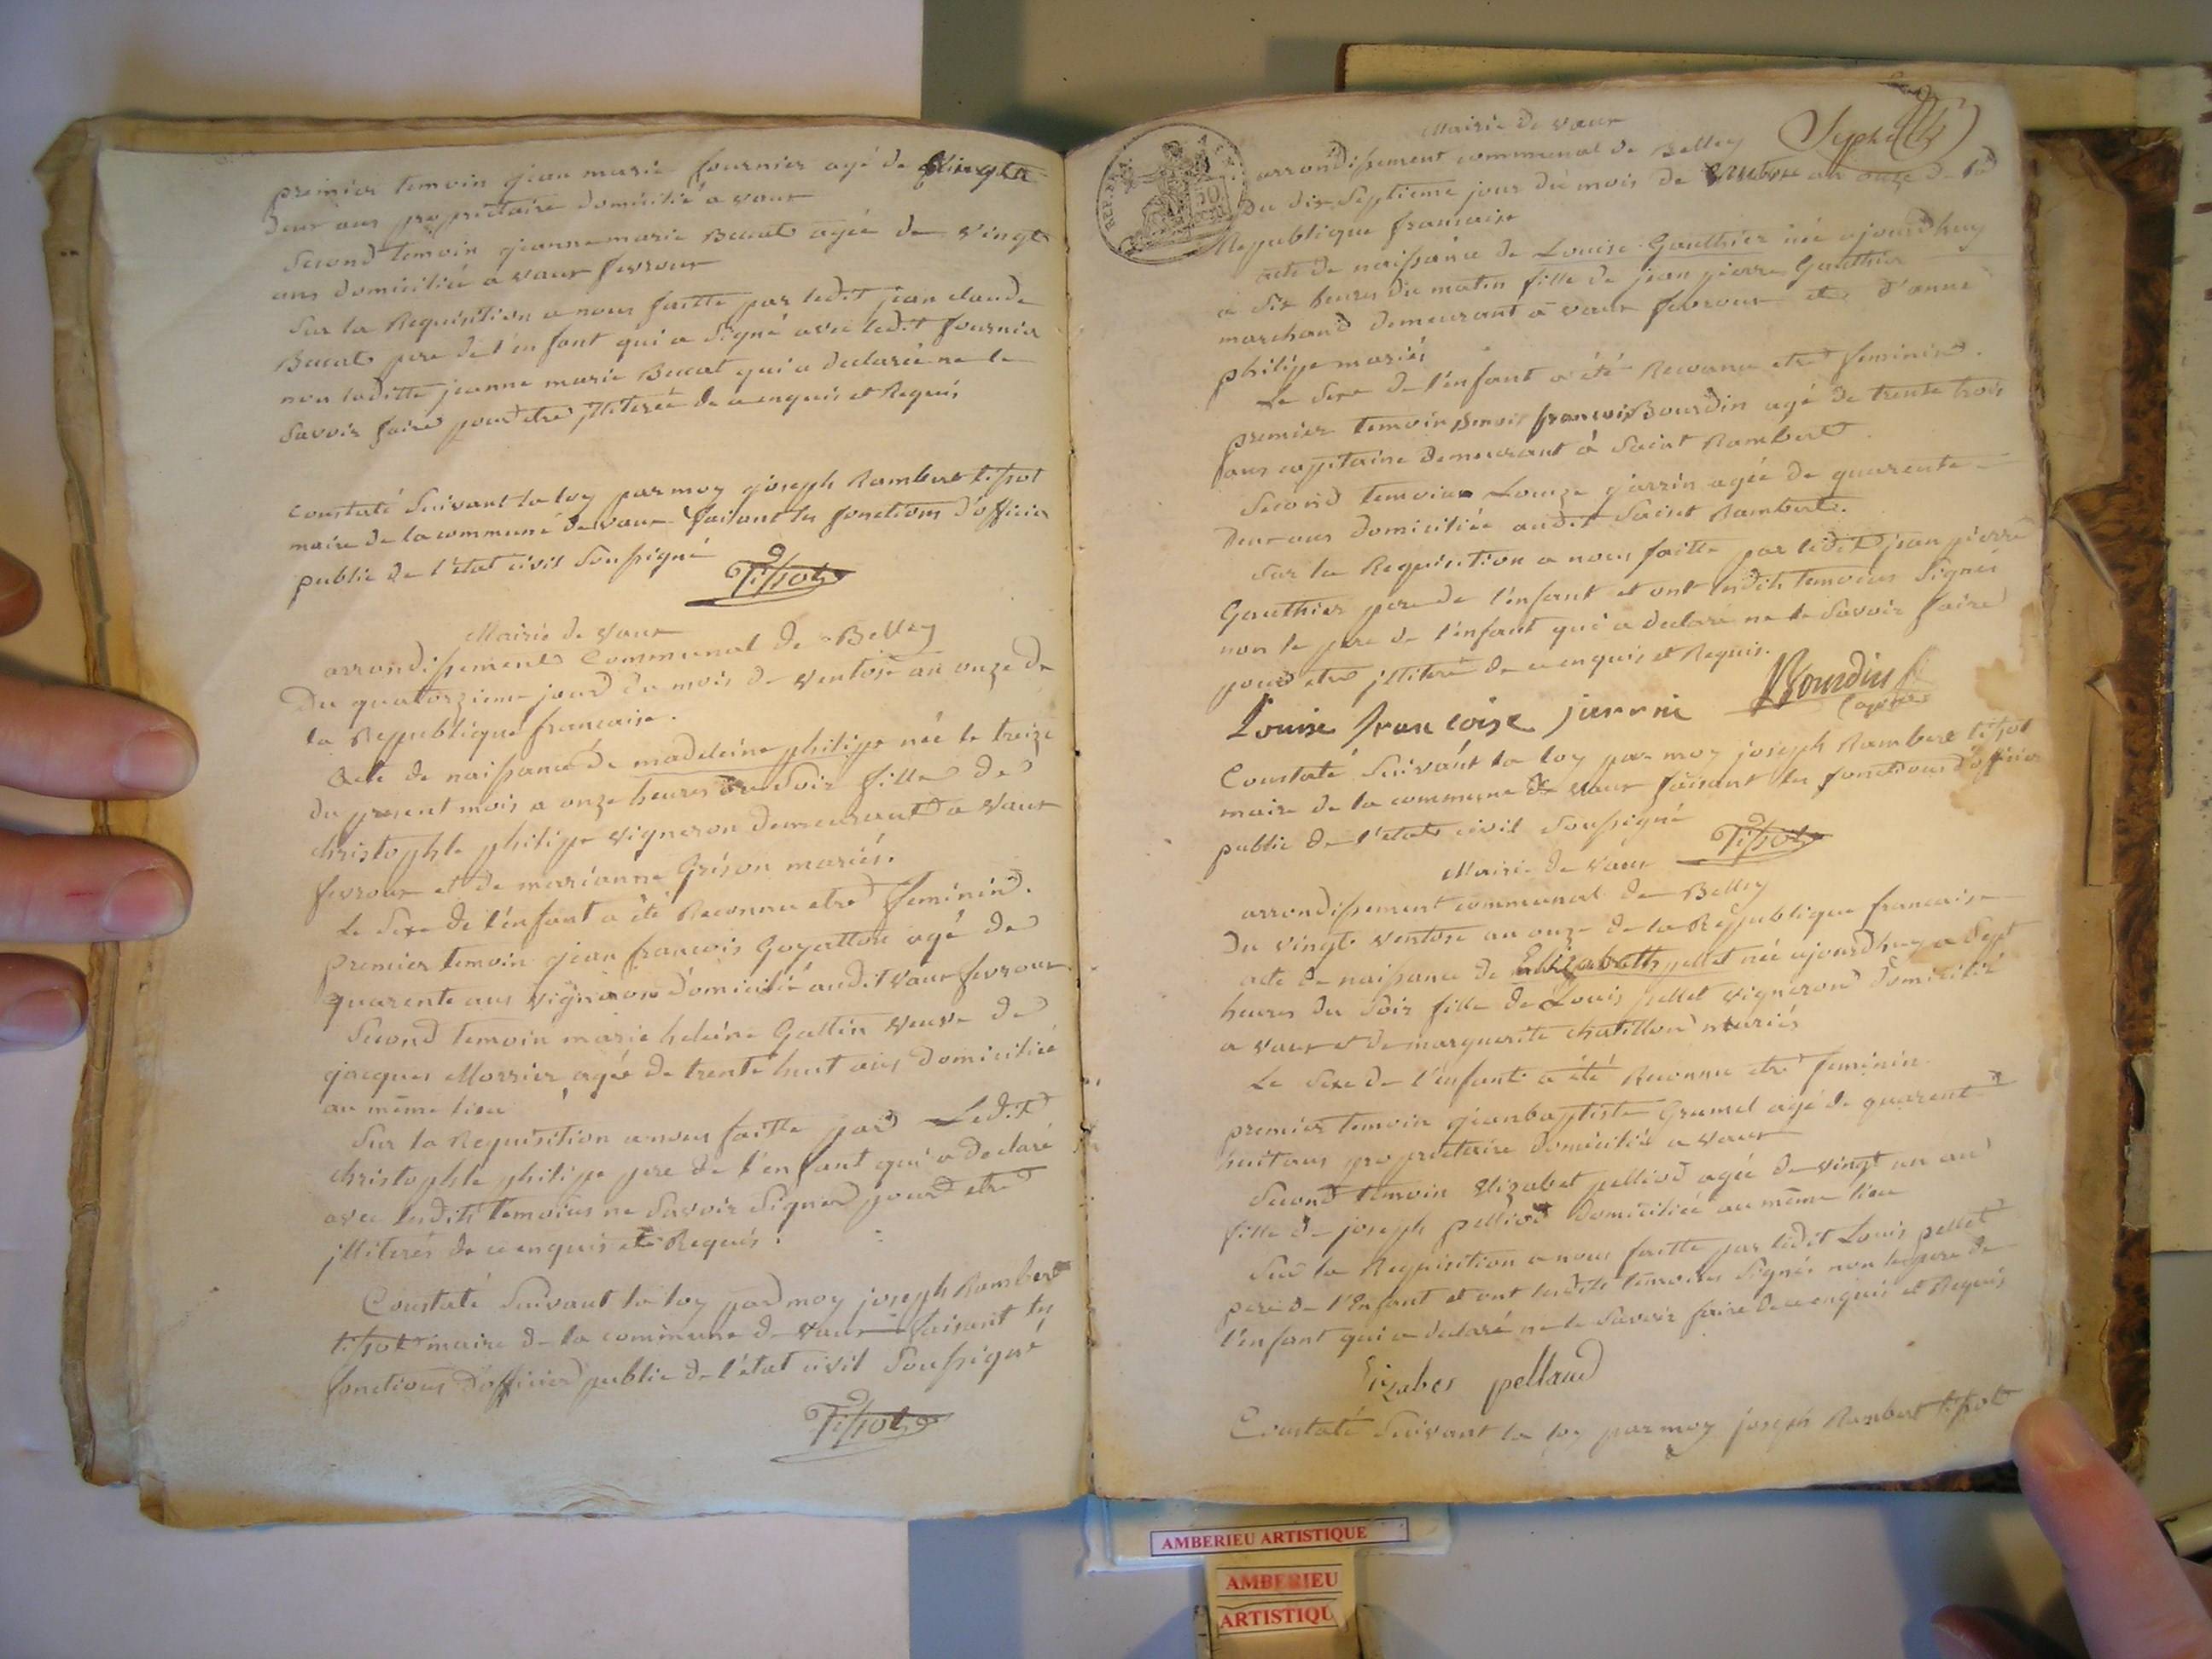 premier temoin jean marie fournier agé de vingt
deux ans propriétaire domicilié a vaux
Second temoin jeanne marie Bucat agée de vingt
ans domiciliée a vaux fevroux
Sur la Requisition a nous faitte par ledit jean claude
Bucat pere de l'enfant qui a Signé avec ledit fournier
non laditte jeanne marie Bucat qui a declarée ne le
Savoir faire pour etre illiterée de ce enquis et Requis
Constaté Suivant la loy par moy joseph Rambert tissot
maire de la commune de vaux faisant les fonctions d'officier
public de l'état civil Soussigné
Tissot
Mairie de Vaux
arrondissement Communal de Belley
Du quatorzieme jour du mois de Ventose an onze de
la Republique francaise.
Acte de naissance de madeleine philipe née le treize
du present mois a onze heures du Soir fille de
christophle philipe vigneron demeurant a Vaux
fevroux et de marianne Grison mariés.
Le Sexe de l'enfant a été Reconnu etre feminin.
premier temoin jean francois Goyatton agé de
quarente ans vigneron domicilié audit vaux fevroux
Second temoin marie heleine Gallin veuve de
jacques Morrier agée de trente huit ans domiciliée
au même lieu
Sur la Requisition a nous faitte par Ledit
christophle philipe pere de l'enfant qui a declaré
avec lesdits temoins ne Savoir Signer pour etre
illiterés de ce enquis et Requis.
Constaté Suivant la loy par moy joseph Rambert
tissot maire de la commune de vaux faisant les
fonctions d'officier public de l'état civil Soussigné
Tissot
Mairie de vaux
arrondissement communal de Belley
Du dix Septieme jour du mois de Ventose an onze de la
Republique francaise
REP. FRA.
50
acte de naissance de Louise Gauthier née ajourdhuy
a dix heures du matin fille de jean pierre Gauthier
marchand demeurant a vaux fevroux et d'anne
philipe mariés
Le Sexe de l'enfant a été Reconnu etre feminin.
premier temoin Benoit francois Bourdin agé de trente trois
ans capitaine demeurant á Saint Rambert
Second temoin Louize jarrin agée de quarente
deux ans domiciliée audit Saint Rambert.
Sur la Requisition a nous faitte par ledit jean pierre
Gauthier pere de l'enfant et ont lesdits temoins Signés
non le pere de l'enfant qui a declaré ne le Savoir faire
pour etre illiteré de ce enquis et Requis.
Louise francoise jarrin Bourdin
Capne
Constaté Suivant la loy par moy joseph Rambert tissot
maire de la commune de vaux faisant les fonctions d'officier
public de l'etat civil Soussigné Tissot
Mairie de Vaux
arrondissement communal de Belley
Du vingt Ventose an onze de la Republique francaise
acte de naissance de Elizabeth pellet née ajourdhuy a Sept
heures du Soir fille de Louis pellet vigneron domicilié
a vaux et de marguerite chatillon mariés
Le Sexe de l'enfant a été Reconnu etre feminin
premier temoin jean baptiste Grumel agé de quarent
huit ans proprietaire domicilié a vaux
Second temoin Elizabet pelliod agée de vingt un an
fille de joseph pelliod domiciliée au même lieu
Sur la Requisition a nous faitte par ledit Louis pellet
pere de l'Enfant et ont lesdits temoins Signés non le pere de
l'enfant qui a declaré ne le Savoir faire de ce enquis et Requis
Elzabes pellaud
Constaté Suivant la loy par moy joseph Rambert tissot
AMBERIEU ARTISTIQUE
AMBERIEU
ARTISTIQU